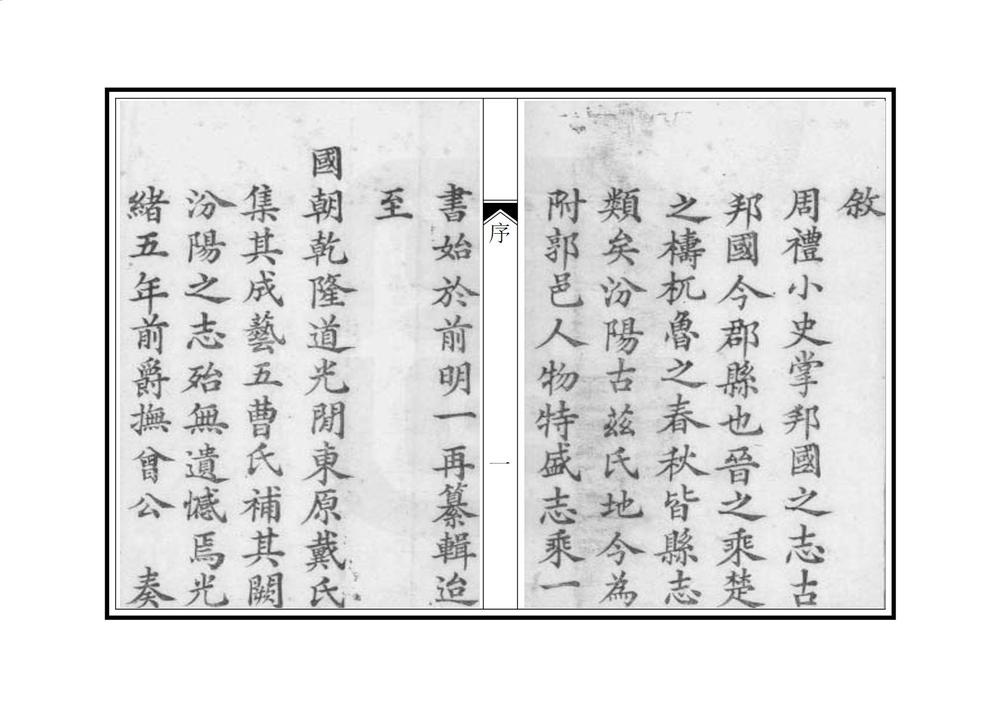 敘
周禮小史掌邦國之志古
邦國今郡縣也晉之乘楚
之檮杌魯之春秋皆縣志
類矣汾陽古茲氏地今為
附郭邑人物特盛志乘一
序
一
書始於前明一再纂輯迨
至
國朝乾隆道光閒東原戴氏
集其成藝五曹氏補其闕
汾陽之志殆無遺憾焉光
緒五年前爵撫曾公 奏